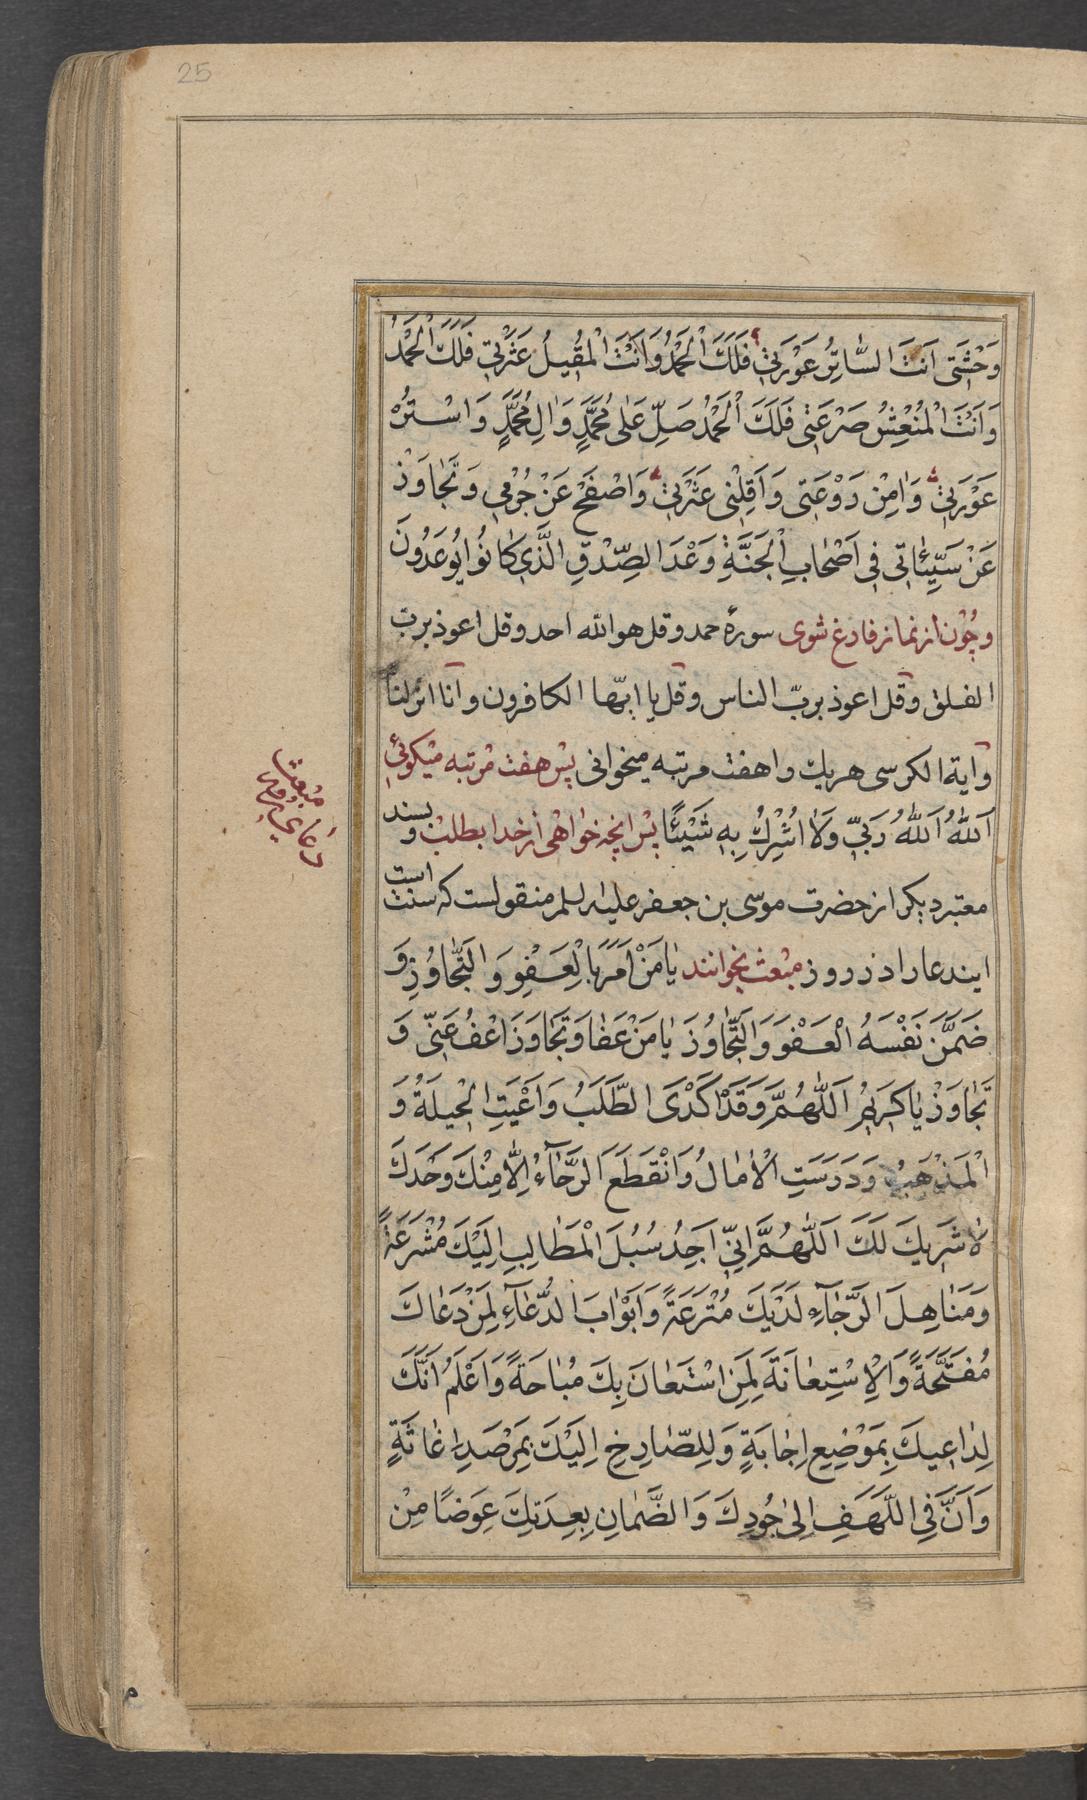 25
وَحْشَتى اَنتَ السّٰاتِرُ عَوْرَتي فَلَكَ الْحَمْدُ وَاَنْتَ الْمُقيلُ عَثْرَتي فَلَكَ الْحَمْدُ
وَاَنْتَ الْمُنْعِشُ صَرْعَتي فَلَكَ الْحَمْدُ صَلِّ عَلٰى مُحَمَّدٍ وَاٰلِ مُحَمَّدٍ وَاسْتُرْ
عَوْرَتي وَاٰمِنْ رَوْعَتي وَاَقِلْني عَثْرَتي وَاصْفَحْ عَنْ جُرْمي وَتَجٰاوَزْ
عَنْ سَيِّئٰاتي في اَصْحٰابِ الْجَنَّةِ وَعْدَ الصِّدْقِ الَّذي كٰانُوا يُوعَدُونَ
وچُون از نماز فارغ شوى سورۀ حمد وقل هو الله احد وقل اعوذ بربّ
الفلق وقل اعوذ بربّ الناس وقل يا ايّها الكافرون وانّا انزلنا
واية الكرسى هريك را هفت مرتبه ميخوانى پس هفت مرتبه ميكوئي
اَللهُ اَللهُ رَبّي وَلٰا اُشْرِكُ بِهِ شَيْئًا پس انچه خواهى از خدا بطلب وبسند
معتبر ديكر از حضرت موسى بن جعفر عليه السلم منقولست كه سنت است
ايندعا را در روز مبعث بخوانند يٰا مَنْ اَمَرَ بِالْعَفْوِ وَالتَّجٰاوُزِ وَ
ضَمَّنَ نَفْسَهُ الْعَفْوَ وَالتَّجٰاوُزَ يٰا مَنْ عَفٰا وَتَجٰاوَزَ اعْفُ عَنّي وَ
تَجٰاوَزْ يٰا كَريمُ اَللّٰهُمَّ وَقَدْ اَكْدَى الطَّلَبُ وَاَعْيَتِ الْحيلَةُ وَ
الْمَذْهَبُ وَدَرَسَتِ الْاٰمٰالُ وَانْقَطَعَ الرَّجٰآءُ اِلّٰا مِنْكَ وَحْدَكَ
لٰا شَريكَ لَكَ اَللّٰهُمَّ اِنّي اَجِدُ سُبُلَ الْمَطٰالِبِ اِلَيْكَ مُشْرَعَةً
وَمَنٰاهِلَ الرَّجٰآءِ لَدَيْكَ مُتْرَعَةً وَاَبْوٰابَ الدُّعٰآءِ لِمَنْ دَعٰاكَ
مُفَتَّحَةً وَالْاِسْتِعٰانَةَ لِمَنِ اسْتَعٰانَ بِكَ مُبٰاحَةً وَاَعْلَمُ اَنَّكَ
لِدٰاعيكَ بِمَوْضِعِ اِجٰابَةٍ وَلِلصّٰارِخِ اِلَيْكَ بِمَرْصَدِ اِغٰاثَةٍ
وَاَنَّ فِي اللَّهَفِ اِلٰى جُودِكَ وَالضَّمٰانِ بِعِدَتِكَ عِوَضًا مِنْ
دعاي روز مبعث